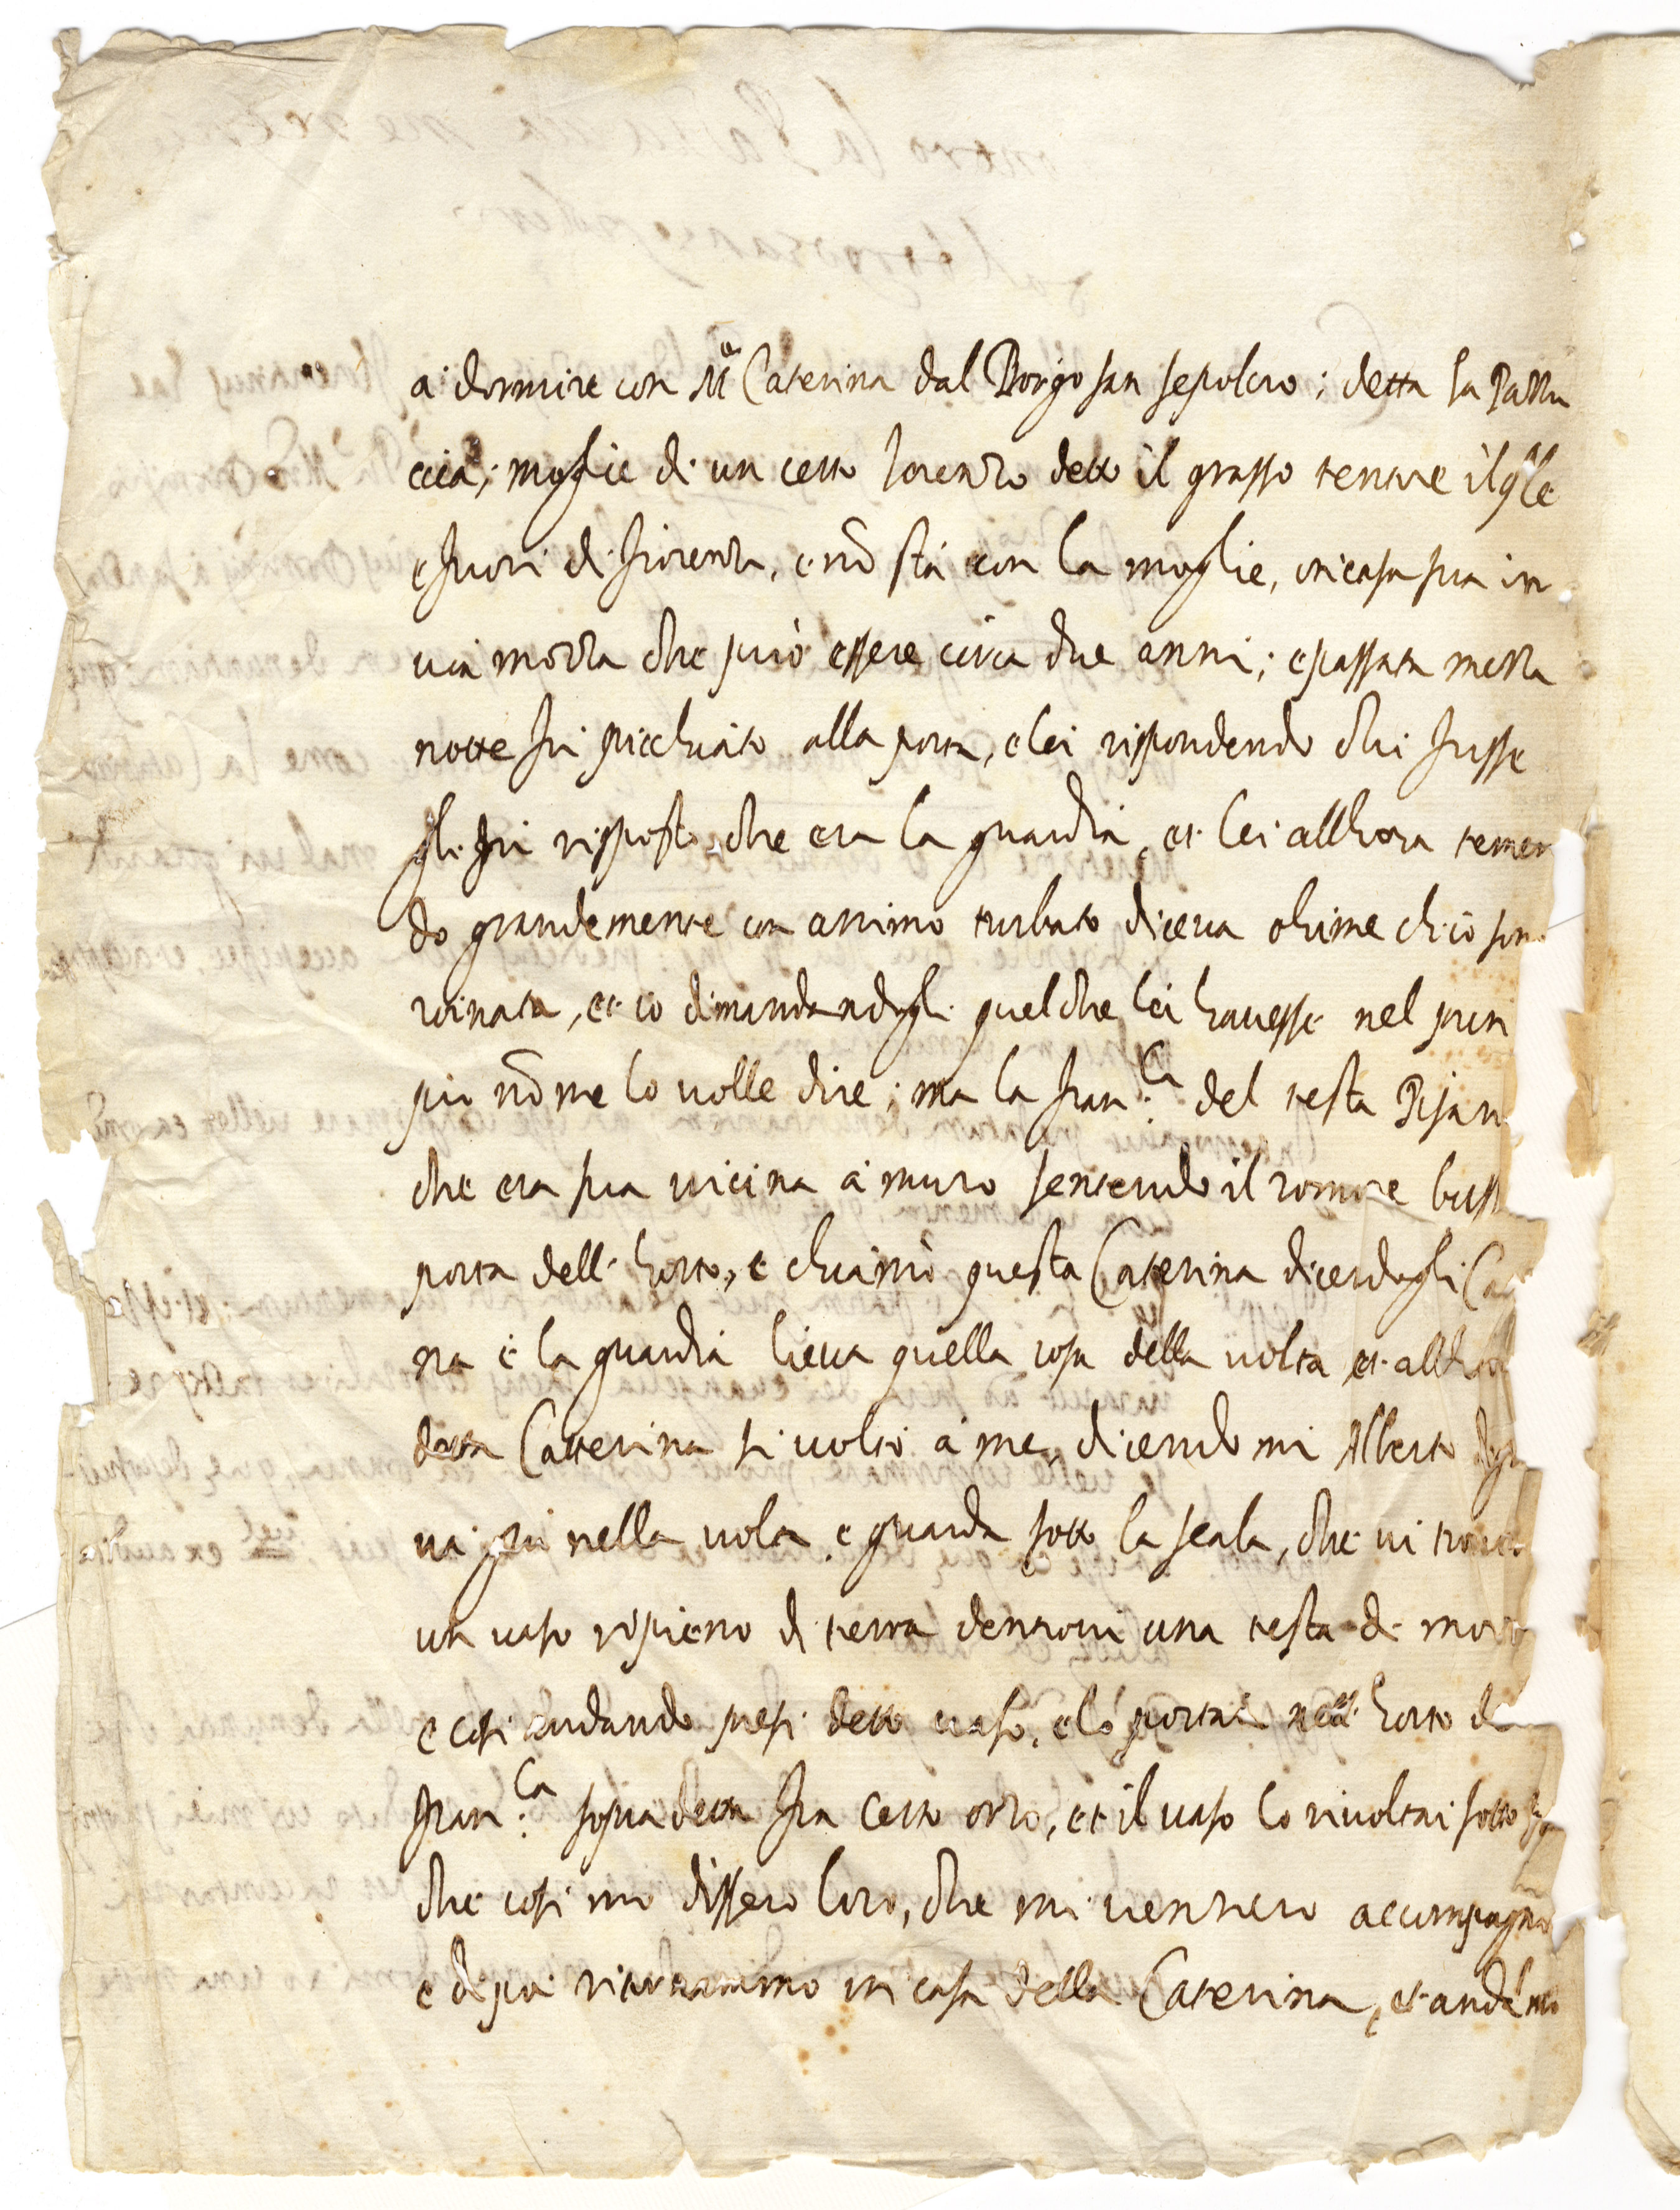 a dormire con M.ª Caterina dal Borgo san sepolcro; detta la Pazza
ccia; moglie di un certo lorenzo detto il grasso tentore il qle
e fuori di fiorenza, e nō stà con la moglie, in casa sua in
via mozza che può essere circa due anni; e passata mezza
notte fu picchiato alla porta, e lei rispondendo chi fusse
gli fu risposto che era la guardia, et lei allhora temen
do grandemente con animo turbato diceva ohime ch'io sono
roinata, et io dimandandogli quel che lei havesse nel prin
pio nō me lo volle dire; ma la fran.ca del testa Pisan
che era sua vicina a muro sentendo il romore buss
porta dell' horto, e chiamò questa Caterina dicendogli Ca
na è la guardia lieva quella cosa della volta et allho
detta Catterina si voltò à me, dicendomi Alberto
va giù nella volta e guarda sotto la scala, che vi trov
un vaso ripieno di terra dentrovi una testa di mort
e cosi andando presi detto vaso, e lo portai nell' horto d
fran.ca sopradetta fra certo orzo, et il vaso lo rivoltai sotto
che cosi mi dissero loro, che mi vennero accompagna
e dipoi ritornammo in casa della Caterina, et andāmo